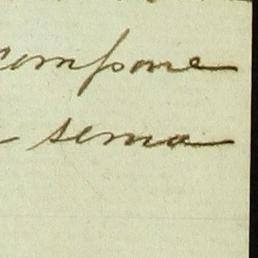 compone
sema